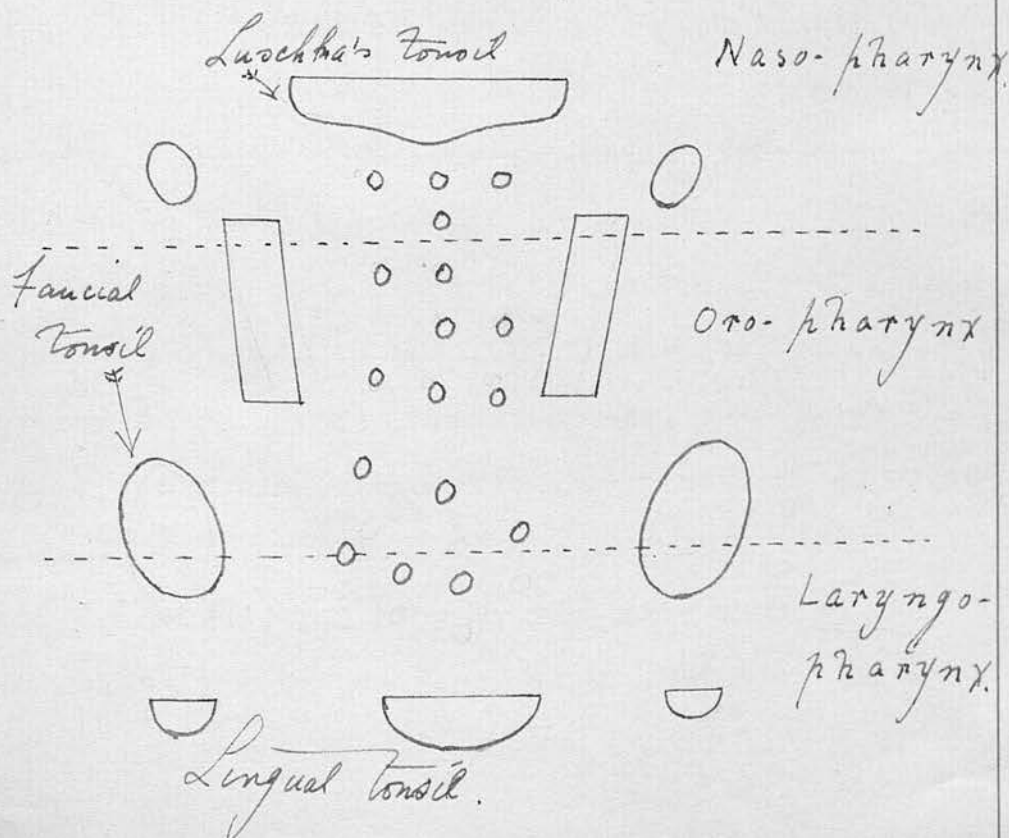 Luschka's tonsil
Naso-pharynx.
Faucial
tonsil
Oro-pharynx
Laryngo-
pharynx.
Lingual tonsil.